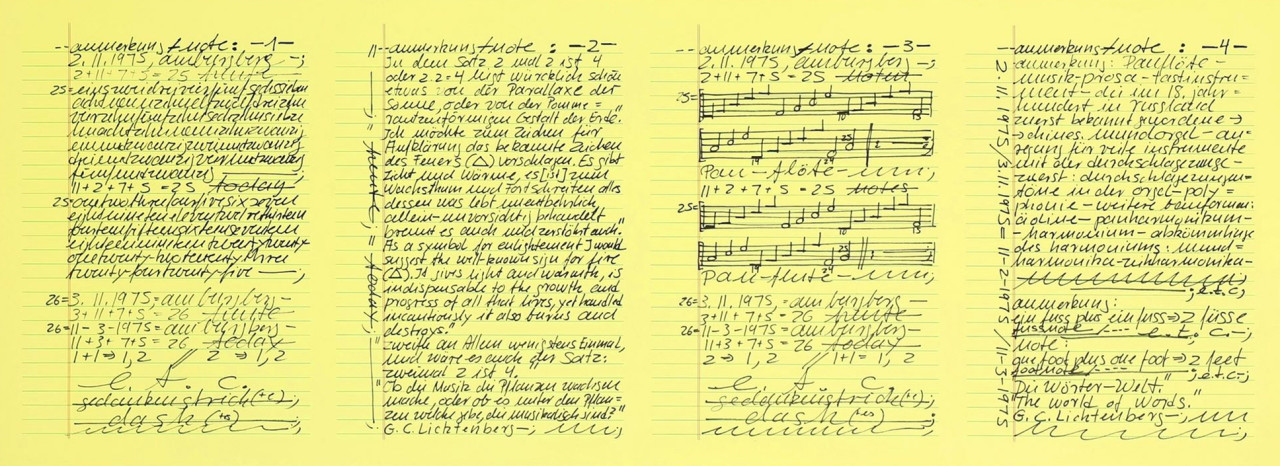 --anmerkung+note: -1-
2.11.1975, am burgberg-;
2+11+7+5=25 heute
25=einszweidreivierfünfsechssieben
achtneunzehnelfzwölfdreizehn
vierzehnfünfzehnsechzehnsiebze
hnachtzehnneunzehnzwanzig
einundzwanzigzweiundzwanzig
dreiundzwanzigvierundzwanzig
fünfundzwanzig
11+2+7+5=25 today
25=onetwothreefourfivesixseven
eightnineteneleventwelvethirteen
fourteenfifteensixteenseventeen
eighteennineteentwentytwenty
onetwenty-twotwenty-three
twenty-fourtwenty-five-;
26=3.11.1975,=am burgberg-
3+11+7+5=26 heute
26=11-3-1975=am burgberg-
11+3+7+5=26 today
1+1=1,2 // 2 ⇒ 1,2
e. t. c.
gedankenstrich(+e);
dash(+es);
"--anmerkung+note: -2-
In dem Satz 2 mal 2 ist 4
oder 2.2=4 liegt würcklich schon
etwas von der Parallaxe der
Sonne, oder von der Pomme=
ranzenförmigen Gestalt der Erde."
Ich möchte zum Zeichen für
Aufklärung das bekannte Zeichen
des Feuers (△) vorschlagen. Es gibt
Licht und Wärme, es [ist] zum
Wachsthum und Fortschreiten alles
dessen was lebt unentbehrlich,
allein-unvorsichtig behandelt
brennt es auch und zerstört auch."
As a symbol for enlightement I would
suggest the well-known sign for fire
(△). It gives light and warmth, is
indispensable to the growth and
progress of all that lives, yet handled
incautiously it also burns and
destroys."
zweifle an Allem wenigstens Einmal,
und wäre es auch der Satz:
zweimal 2 ist 4."
Ob die Musik die Pflanzen wachsen
mache, oder ob es unter den Pflan=
zen welche gebe, die musikalisch sind?"
G.C. Lichtenberg-;
heute; = today;
--anmerkung+note: -3-
2.11.1975, am burgberg-;
2+11+7+5=25 Noten
25=
Pan-flöte-
11+2+7+5=25 notes
25=
Pan-flute-
26=3.11.1975,=am burgberg-
3+11+7+5=26 heute
26=11-3-1975=am burgberg-
11+3+7+5=26 today
2 ⇒ 1,2 // 1+1=1,2
e. t. c.
gedankenstrich(+e);
dash(+es);
--anmerkung+note: -4-
anmerkung: Panflöte-
musik-prosa-tastinstru=
ment-die im 18. jahr=
hundert in russland
zuerst bekannt gewordene→
→chines. mundorgel-an=
regung für viele instrumente
mit der durchschlagezunge-
zuerst: durchschlagezungen=
töne in der orgel-poly=
phonie-weitere bauformen:
äoline-panharmonikum-
-harmonium-abkömmlinge
des harmoniums: mund=
harmonika-ziehharmonika-
;e.t.c;
anmerkung:
ein fuss plus ein fuss⇒2 füsse
fussnote/---- e. t. c.-;
note:
one foot plus one foot⇒2 feet
footnote/---- ;e.t.c-;
"Die Wörter-Welt."
"The world of Words."
G. C. Lichtenberg-;
2.11.1975/3.11.1975=11-2-1975/11-3-1975